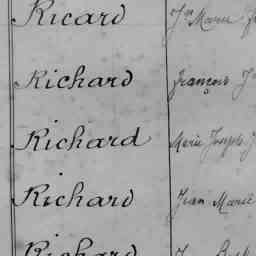 Ricard Jn Marie
Richard François Jn
Richard Marie Joseph J
Richard Jean Marie
Richard